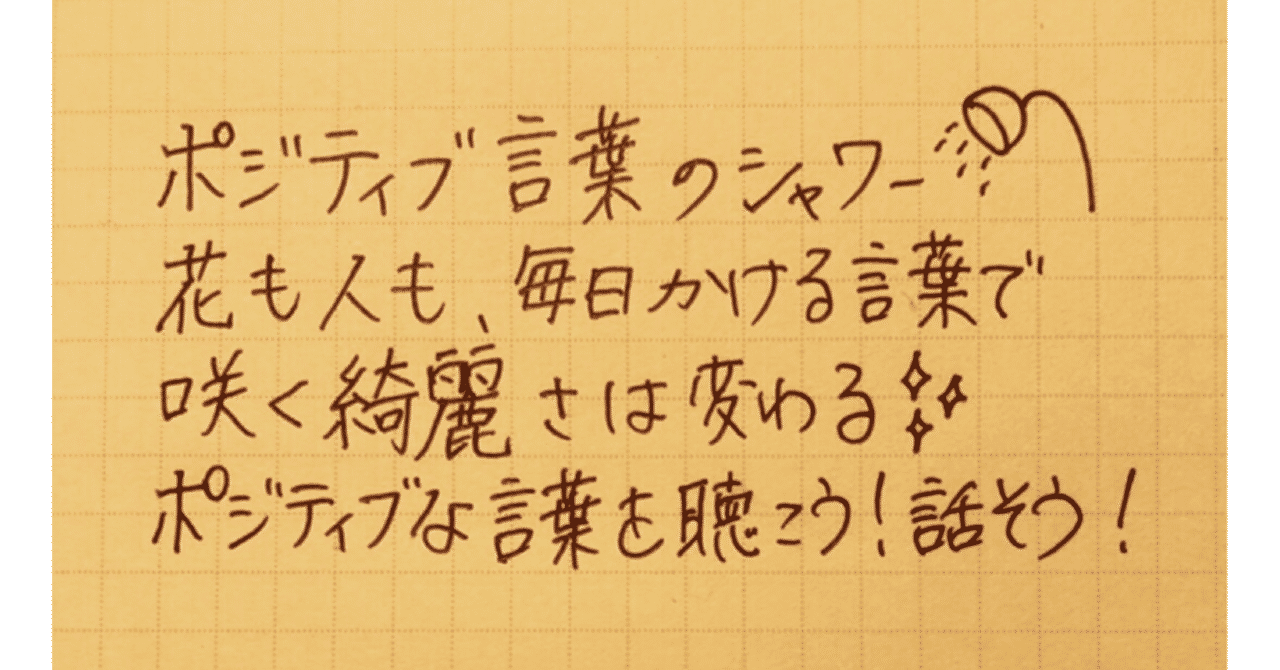 ポジティブ言葉のシャワー
花も人も、毎日かける言葉で
咲く綺麗さは変わる
ポジティブな言葉を聴こう!話そう!